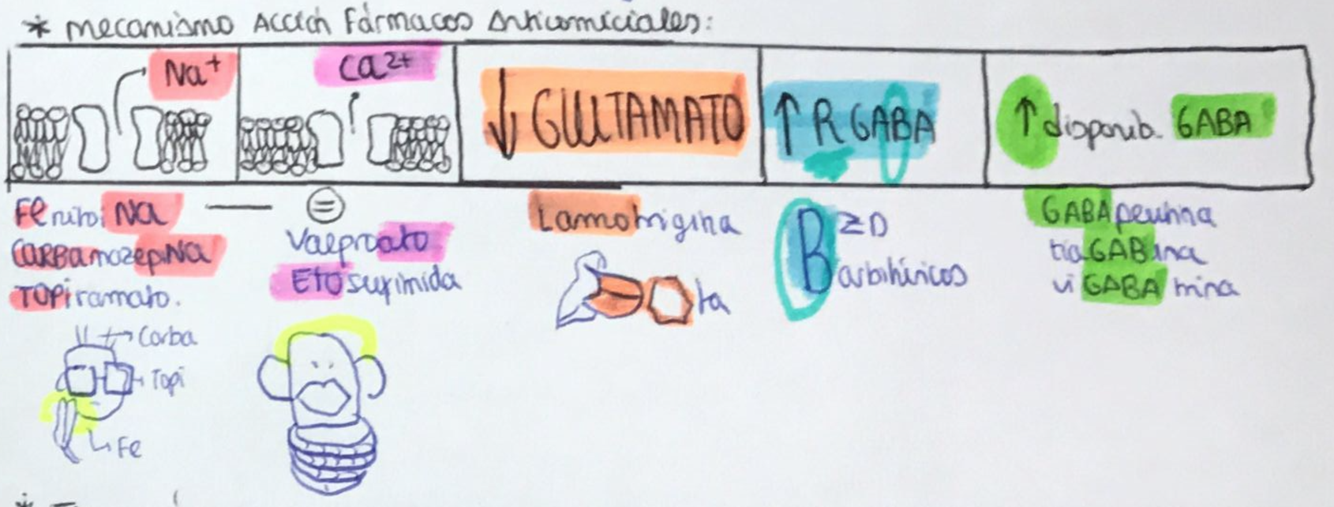 * Mecanismo Acción Fármacos Anticomiciales:
Na⁺
Ca²⁺
↓ GLUTAMATO
↑ R GABA
↑ disponib. GABA
FenitoiNa
CARBamazepiNa
TOPiramato.
=
Valproato
Etosuximida
Lamotrigina
ta
BZD
Barbitúricos
GABApentina
tiaGABina
viGABAtrina
Carba
Topi
Fe